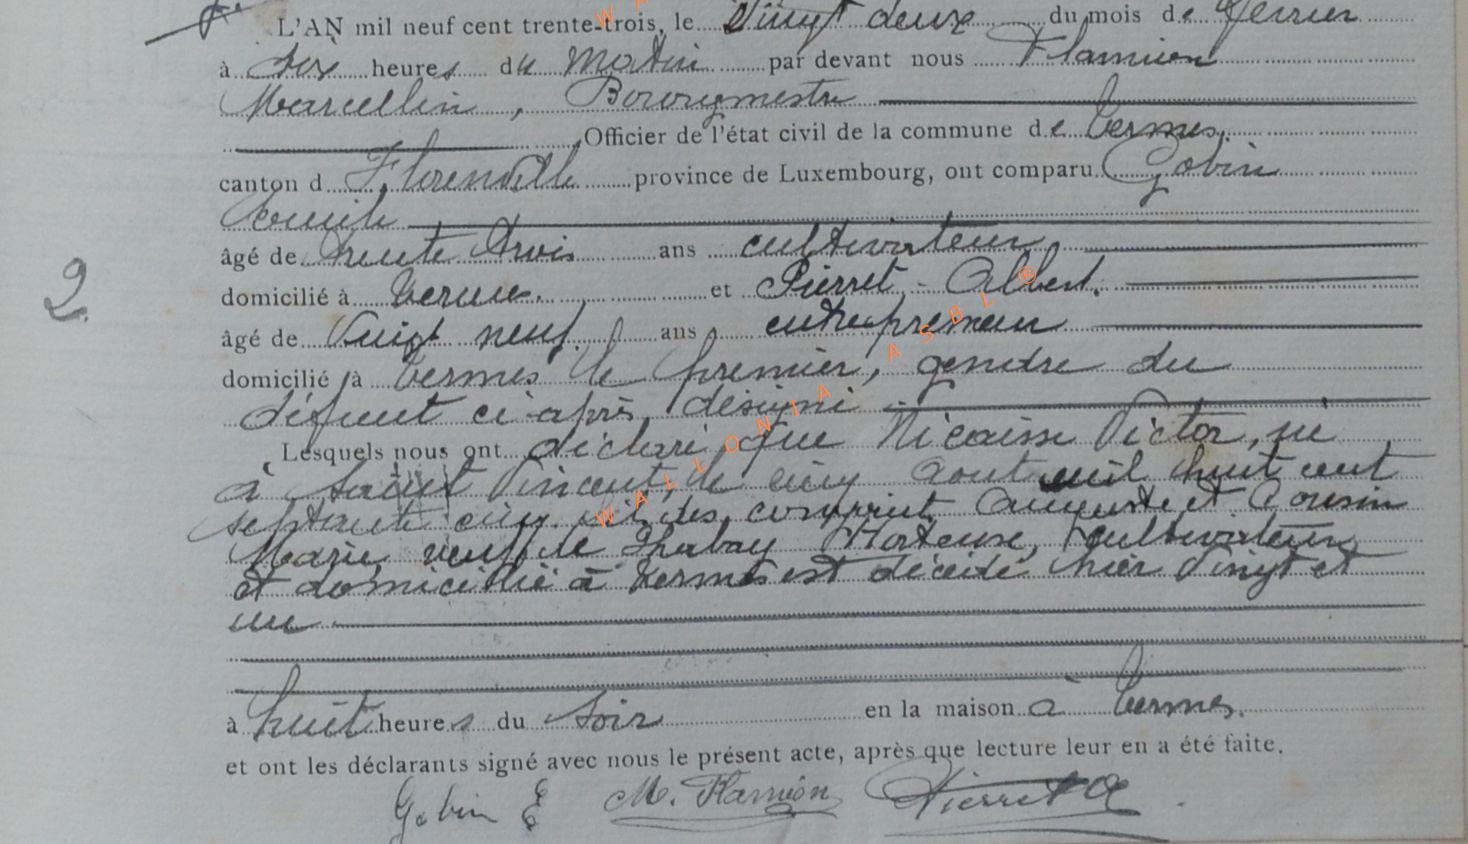 L'AN mil neuf cent trente-trois, le vingt deux du mois de février
à dix heures du matin par devant nous Flamion
Marcellin, Bourgmestre
Officier de l'état civil de la commune de Termes,
canton d Florenville province de Luxembourg, ont comparu Gobin
Emile
âgé de trente trois ans cultivateur,
domicilié à Termes. et Pierret Albert.
âgé de Vingt neuf ans entrepreneur
domicilié à Termes le premier, gendre du
défunt ci-après désigné
Lesquels nous ont déclaré que Nicaisse Victor, né
à Saint Vincent, le cinq Aout mil huit cent
septante cinq, des conjoint Auguste et Gousin
Marie, veuf de Thabay Hortense, cultivateur
et domicilié à Termes est décédé hier Vingt et
un
à huit heures du soir en la maison à Termes.
et ont les déclarants signé avec nous le présent acte, après que lecture leur en a été faite.
Gobin E M. Flamion Pierret A
2
WALLONIA ASBL ©